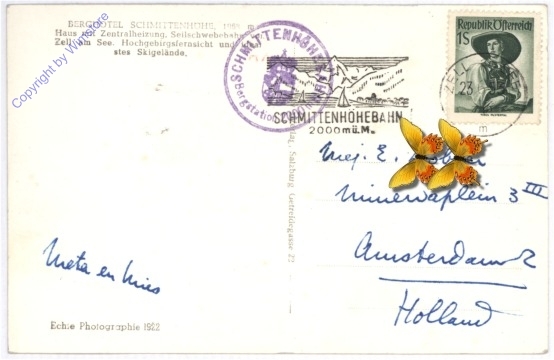 BERGHOTEL SCHMITTENHÖHE, 1968 m
Haus mit Zentralheizung, Seilschwebebahn
Zell am See. Hochgebirgsfernsicht und
stes Skigelände.
Copyright by WinStore
SCHMITTENHÖHE
Bergstation
SCHMITTENHÖHEBAHN
2000 m ü. M.
Republik Österreich
1S
ZELL
23
Mej. E.
Minervaplein 3 III
Amsterdam Z
Holland
Meta en Mies
Salzburg, Getreidegasse 22
Echte Photographie 1922